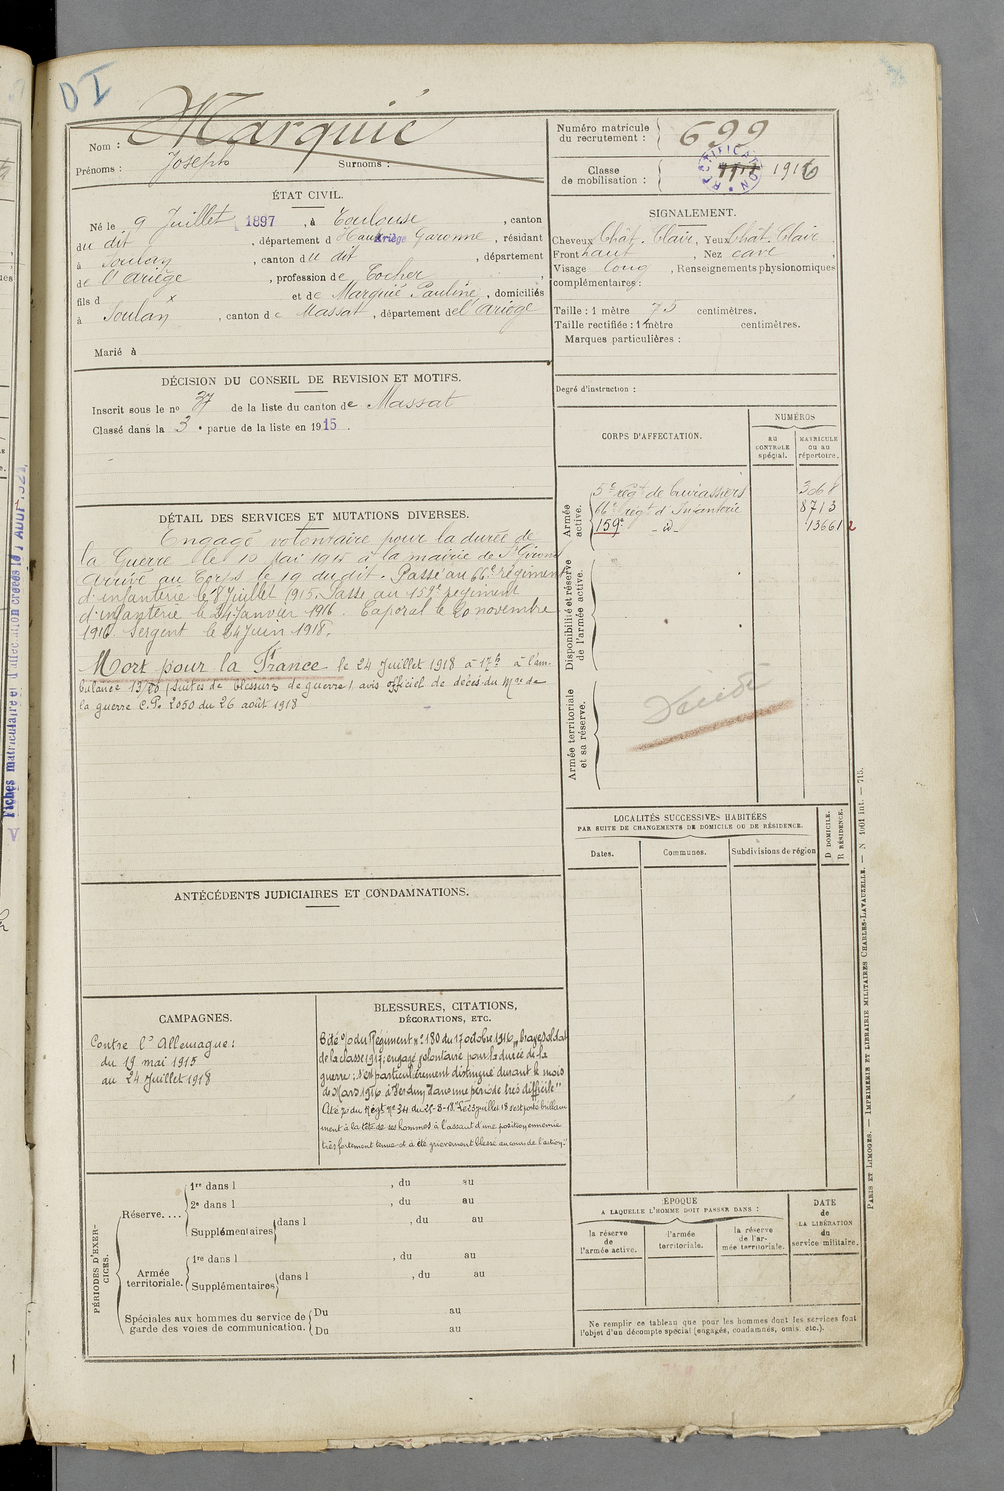 DI
Nom : Marquié
Prénoms : Joseph Surnoms :
Numéro matricule du recrutement : 699
Classe de mobilisation : RECTIFICATION 1916
ÉTAT CIVIL.
Né le 9 Juillet 1897, à Toulouse, canton
du dit, département d Haute Ariège Garonne, résidant
à Soulan, canton du dit, département
de l'Ariège, profession de Cocher
fils d x et de Marquié Pauline, domiciliés
à Soulan, canton de Massat, département de l'Ariège
Marié à
SIGNALEMENT.
Cheveux Chât. Clair, Yeux Chât. Clair,
Front haut, Nez cave,
Visage long, Renseignements physionomiques
complémentaires :
Taille : 1 mètre 75 centimètres.
Taille rectifiée : 1 mètre centimètres.
Marques particulières :
Degré d'instruction :
DÉCISION DU CONSEIL DE REVISION ET MOTIFS.
Inscrit sous le no 37 de la liste du canton de Massat
Classé dans la 3e partie de la liste en 1915.
DÉTAIL DES SERVICES ET MUTATIONS DIVERSES.
Engagé volontaire pour la durée de
la Guerre le 10 Mai 1915 à la mairie de St Girons
Arrivé au Corps le 19 du dit. Passé au 66e régiment
d'infanterie le 8 Juillet 1915. Passé au 159e régiment
d'infanterie le 24 Janvier 1916. Caporal le 20 novembre
1916. Sergent le 24 Juin 1918.
Mort pour la France le 24 Juillet 1918 à 17h à l'am-
bulance (Suites de blessures de guerre) avis officiel de décès du Mre de
la guerre C.P. 2050 du 26 août 1918
CORPS D'AFFECTATION.
NUMÉROS
AU CONTROLE spécial.
MATRICULE ou au répertoire.
Armée active.
5e régt de Cuirassiers 3068
66e régt d'Infanterie 8713
159e -d- 13661
Disponibilité et réserve de l'armée active.
Armée territoriale et sa réserve.
Décédé
LOCALITÉS SUCCESSIVES HABITÉES
PAR SUITE DE CHANGEMENTS DE DOMICILE OU DE RÉSIDENCE.
Dates. Communes. Subdivisions de région
D DOMICILE.
R RÉSIDENCE.
ANTÉCÉDENTS JUDICIAIRES ET CONDAMNATIONS.
CAMPAGNES.
Contre l'Allemagne :
du 19 mai 1915
au 24 Juillet 1918
BLESSURES, CITATIONS,
DÉCORATIONS, ETC.
Cité % du Régiment no 180 du 17 octobre 1916 "brave soldat
de la classe 1917; engagé volontaire pour la durée de la
guerre; s'est particulièrement distingué durant le mois
de Mars 1916 à Verdun dans une période très difficile"
Cité % du Régt No 311 du 25-8-18 "Le 23 juillet 18 s'est porté brillam
ment à la tête de ses hommes à l'assaut d'une position ennemie
très fortement tenue et a été grièvement blessé au cours de l'action."
PÉRIODES D'EXERCICES.
Réserve....
1re dans l , du au
2e dans l , du au
Supplémentaires dans l , du au
Armée territoriale.
1re dans l , du au
Supplémentaires dans l , du au
Spéciales aux hommes du service de garde des voies de communication.
Du au
Du au
ÉPOQUE
A LAQUELLE L'HOMME DOIT PASSER DANS :
la réserve de l'armée active.
l'armée territoriale.
la réserve de l'armée territoriale.
DATE de LA LIBÉRATION du service militaire.
Ne remplir ce tableau que pour les hommes dont les services font
l'objet d'un décompte spécial (engagés, condamnés, omis, etc.).
PARIS ET LIMOGES. — IMPRIMERIE ET LIBRAIRIE MILITAIRES CHARLES-LAVAUZELLE. — N 1001 int. — 715.